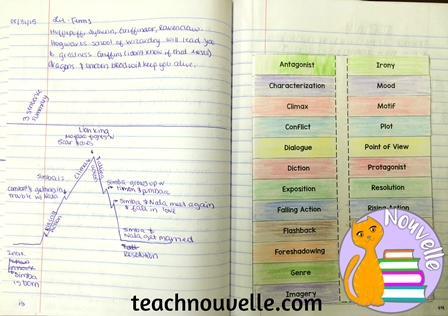 Lit. Terms
Hufflepuff, Slytherin, Gryffindor, Ravenclaw.
Hogwarts school of wizardry will lead you
to greatness. Griffins (I don't know if that
dragons, & unicorn blood will keep you alive.
3 sentence
summary
Lion King
Scar
Climax
Simba grows up w/
timon & pumbaa
Simba is
constantly getting in
trouble w/ Nala
Rising Action
Falling Action
Simba & Nala meet again
& fall in love
Simba &
Nala get married
Resolution
Simba
is born
Antagonist
Characterization
Climax
Conflict
Dialogue
Diction
Exposition
Falling Action
Flashback
Foreshadowing
Genre
Imagery
Irony
Mood
Motif
Plot
Point of View
Protagonist
Resolution
Rising Action
Nouvelle
teachnouvelle.com